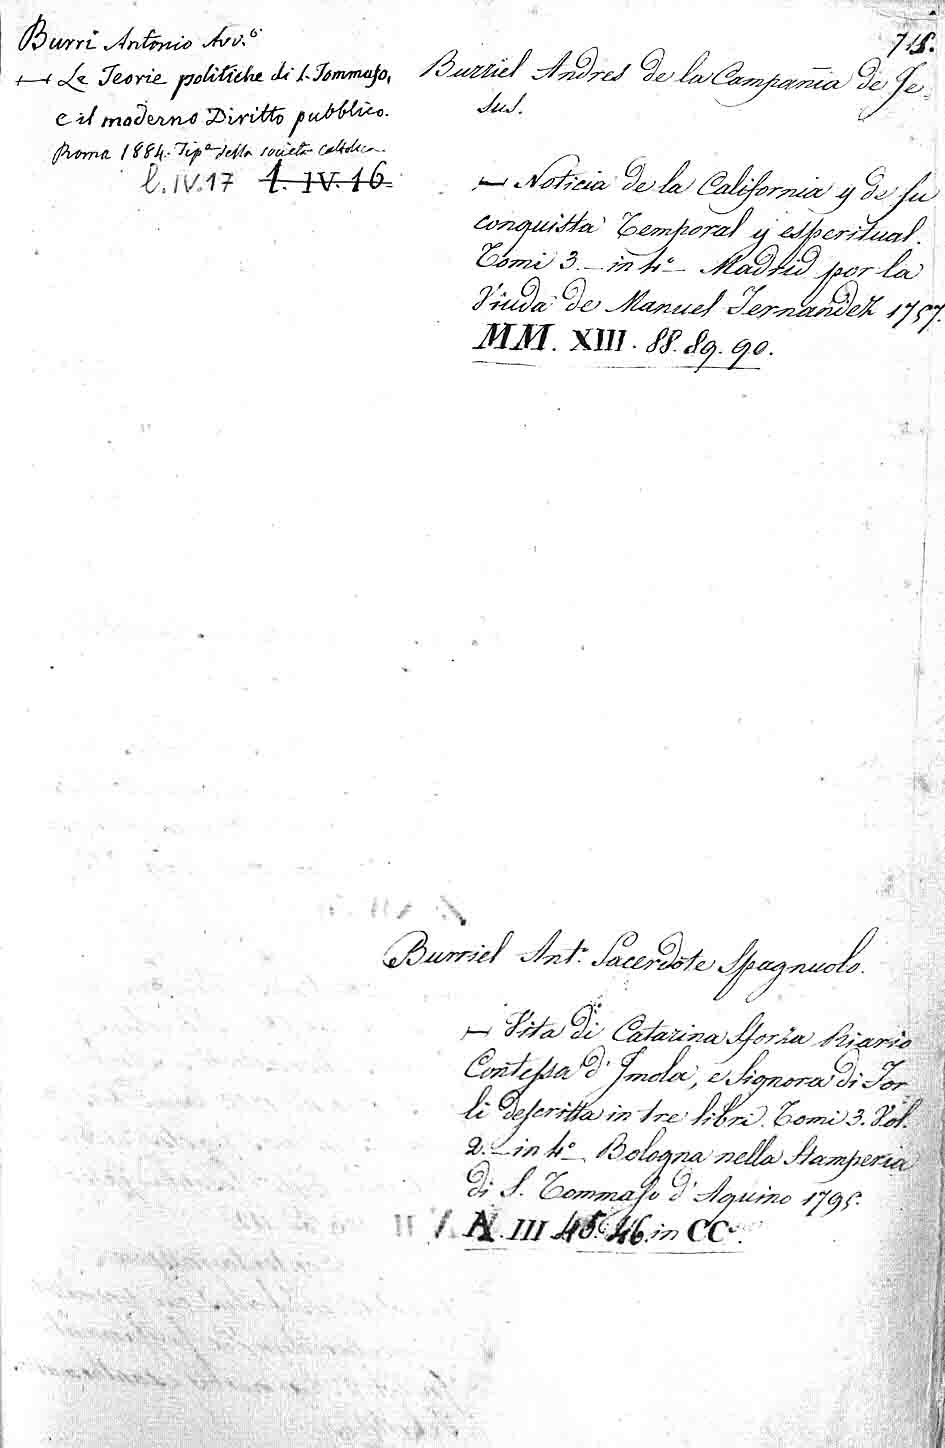 715.
Burri Antonio Avv.o
— Le Teorie politiche di S. Tommaso,
e il moderno Diritto pubblico.
Roma 1884. Tip.a della società cattolica.
l. IV. 17 1. IV. 16
Burriel Andres de la Compañia de Je=
sus.
— Noticia de la California y de su
conquista Temporal y esperitual.
Tomi 3. – in 4.o – Madrid por la
Viuda de Manuel Fernandez 1757.
MM. XIII. 88. 89. 90.
Burriel Ant.o Sacerdote Spagnuolo.
— Vita di Catarina Sforza Riario
Contessa d'Imola, e Signora di For
li descritta in tre libri. Tomi 3. Vol.
2. – in 4.o – Bologna nella Stamperia
di S. Tommaso d'Aquino 1795.
A. III 45. 46. in CC.